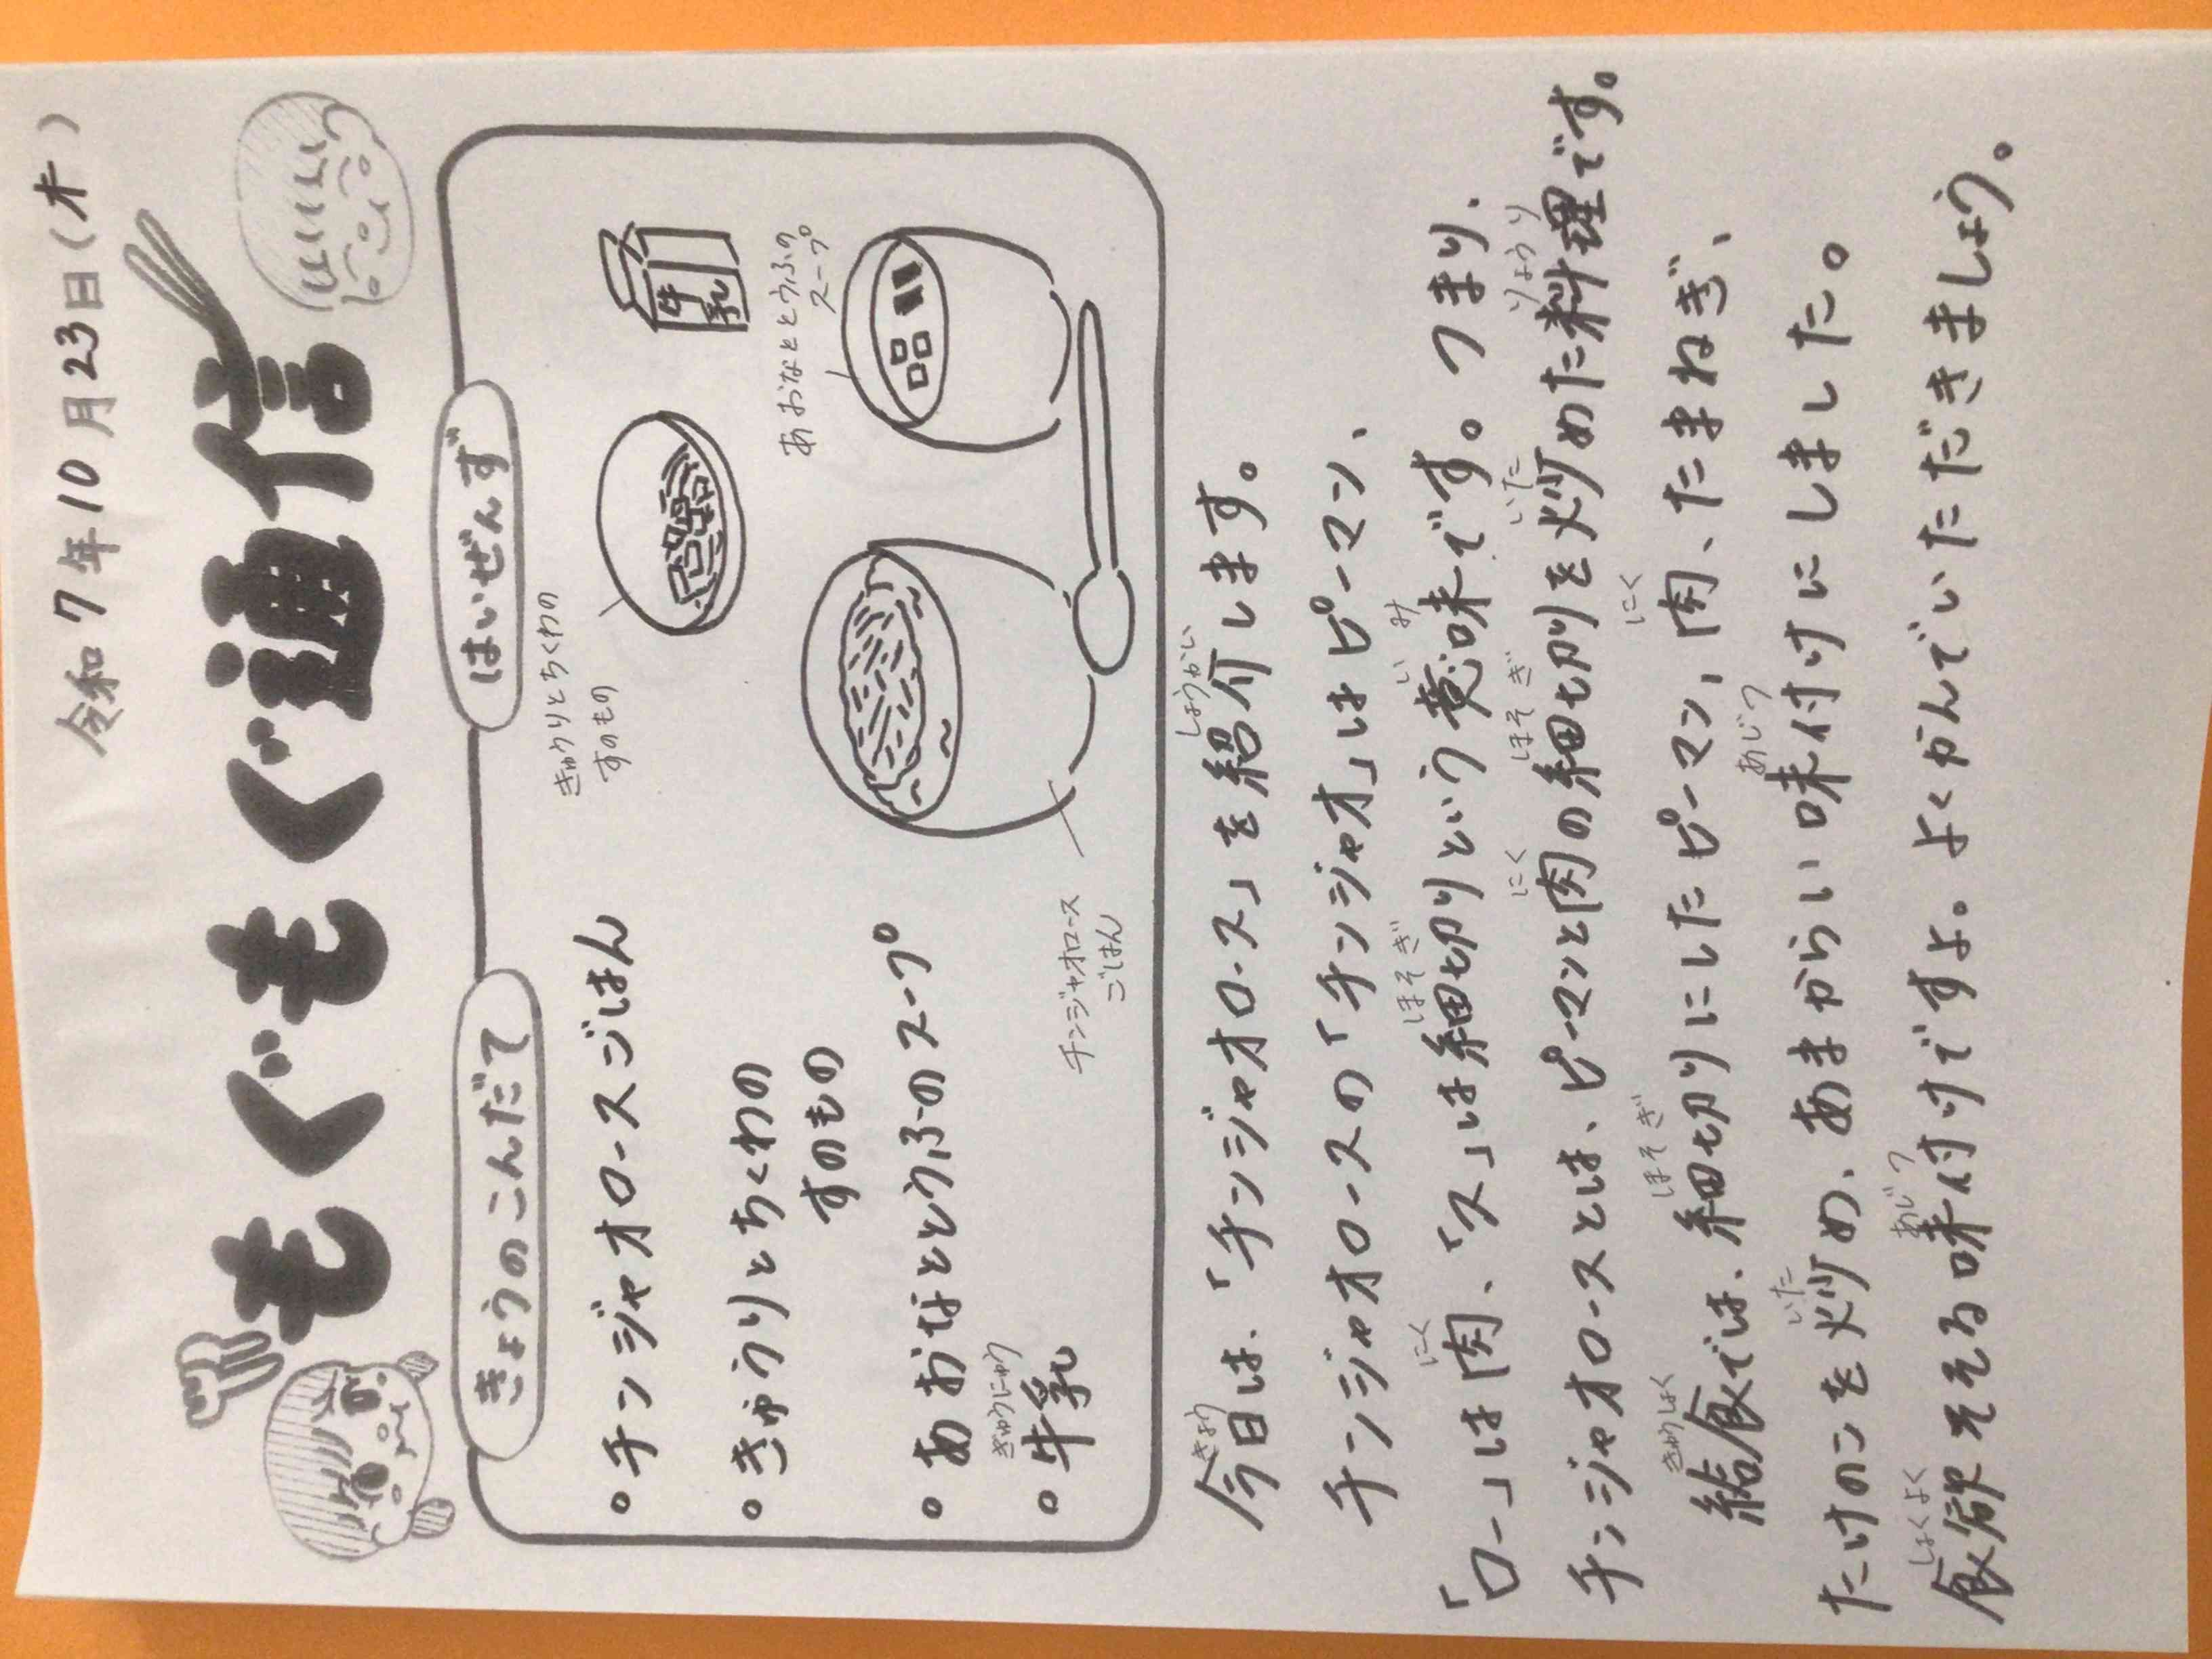 令和7年10月23日(木)
もぐもぐ通信
きょうのこんだて
はいぜんず
・チンジャオロースごはん
・きゅうりとちくわの
すのもの
・あおなととうふのスープ
ぎゅうにゅう
・牛乳
きゅうりとちくわの
すのもの
牛乳
あおなととうふの
スープ
チンジャオロース
ごはん
きょう しょうかい
今日は、「チンジャオロース」を紹介します。
チンジャオロースの「チンジャオ」はピーマン、
にく ほそぎ いみ
「ロー」は肉、「ス」は細切りという意味です。つまり、
にく ほそぎ いた りょうり
チンジャオロースとは、ピーマンと肉の細切りを炒めた料理です。
きゅうしょく ほそぎ にく
給食では、細切りにしたピーマン、肉、たまねぎ、
いた あじつ
たけのこを炒め、あまからい味付けにしました。
しょくよく あじつ
食欲そそる味付けですよ。よくかんでいただきましょう。